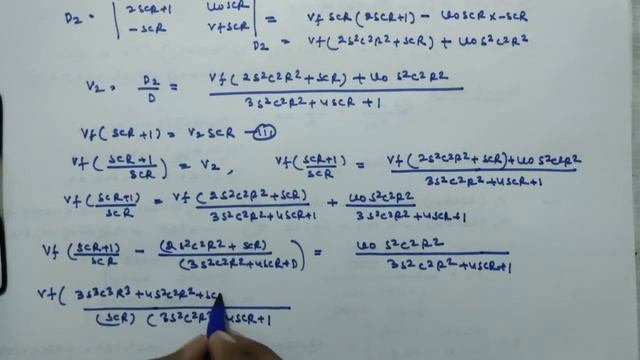 D2 = | 2SCR+1 UoSCR | = Vf SCR (2SCR+1) - UoSCR x -SCR
| -SCR VfSCR | D2 = Vf(2S²C²R²+SCR) + Uo S²C²R²
V2 = D2/D = Vf(2S²C²R²+SCR) + Uo S²C²R² / 3S²C²R²+4SCR+1
Vf(SCR+1) = V2SCR - (III)
Vf(SCR+1/SCR) = V2, Vf(SCR+1)/SCR = Vf(2S²C²R²+SCR)+Uo S²C²R² / 3S²C²R²+4SCR+1
Vf(SCR+1)/SCR = Vf(2S²C²R²+SCR) / 3S²C²R²+4SCR+1 + Uo S²C²R² / 3S²C²R²+4SCR+1
Vf(SCR+1)/SCR - (2S²C²R²+SCR) / (3S²C²R²+4SCR+1)) = Uo S²C²R² / 3S²C²R²+4SCR+1
Vf( 3S³C³R³+4S²C²R²+SC / (SCR) (3S²C²R² 4SCR+1